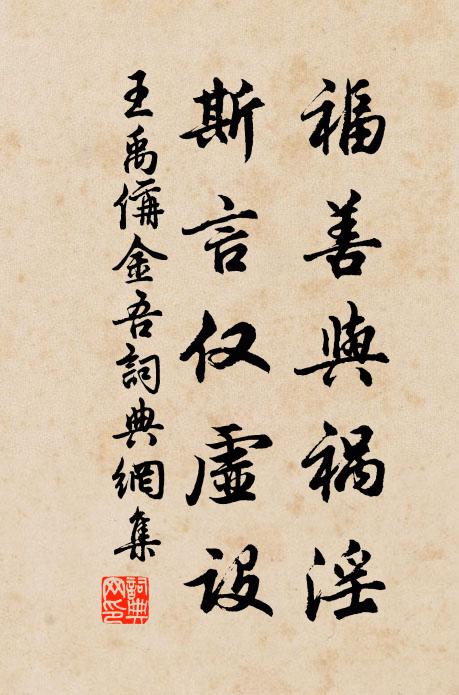 福善與禍淫
斯言仅虛設
王禹偁金吾詞典網集
詞典网印